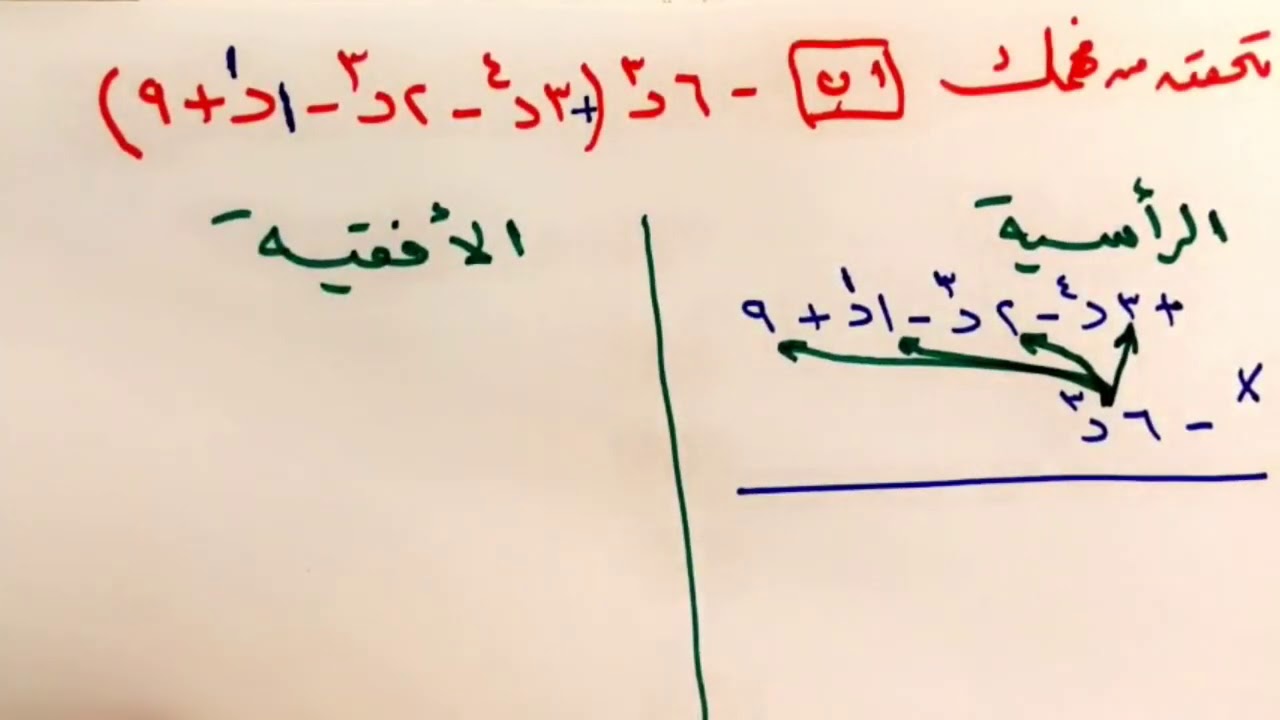 تحقق من فهمك ١ب - ٦د^٣ (+٣د^٤ - ٢د^٣ - ١د^١ + ٩)
الرأسية
+ ٣د^٤ - ٢د^٣ - ١د^١ + ٩
× - ٦د^٣
الأفقية